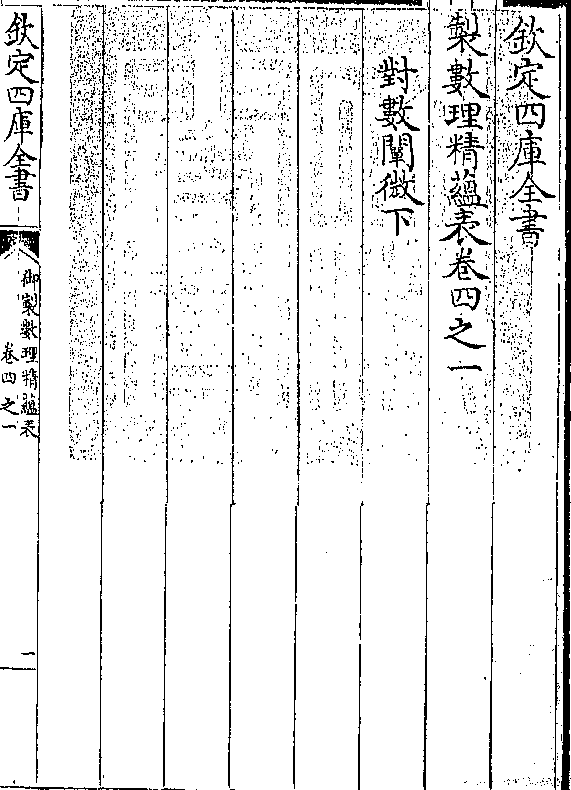 欽定四庫全書
製數理精蘊表卷四之一
對數闡微下
欽定四庫全書
御製數理精蘊表
卷四之一
一